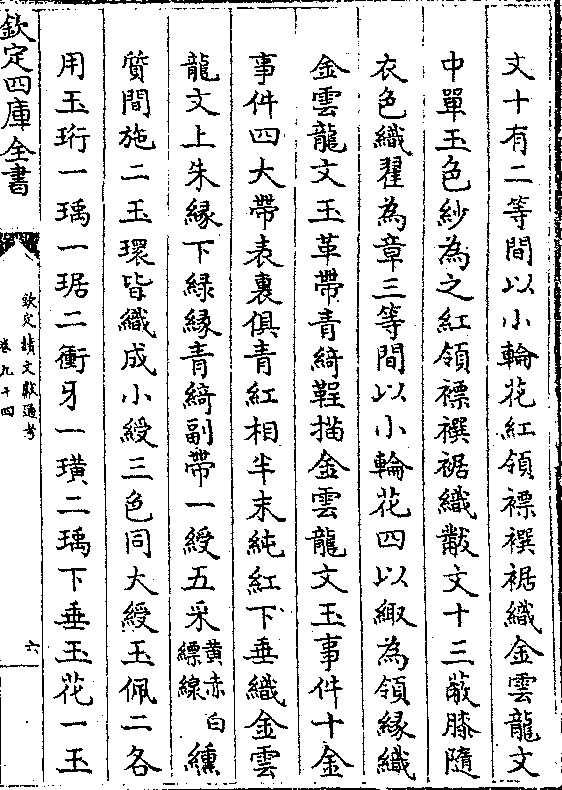 文十有二等間以小輪花紅領褾襈裾織金雲龍文
中單玉色紗為之紅領褾襈裾織黻文十三蔽膝隨
衣色織翟為章三等間以小輪花四以緅為領緣織
金雲龍文玉革帶青綺鞓描金雲龍文玉事件十金
事件四大帶表裏俱青紅相半末純紅下垂織金雲
龍文上朱緣下綠緣青綺副帶一綬五采黃赤白縹綠纁
質間施二玉環皆織成小綬三色同大綬玉佩二各
用玉珩一瑀一琚二衝牙一璜二瑀下垂玉花一玉
欽定四庫全書
欽定續文獻通考
卷九十四
六